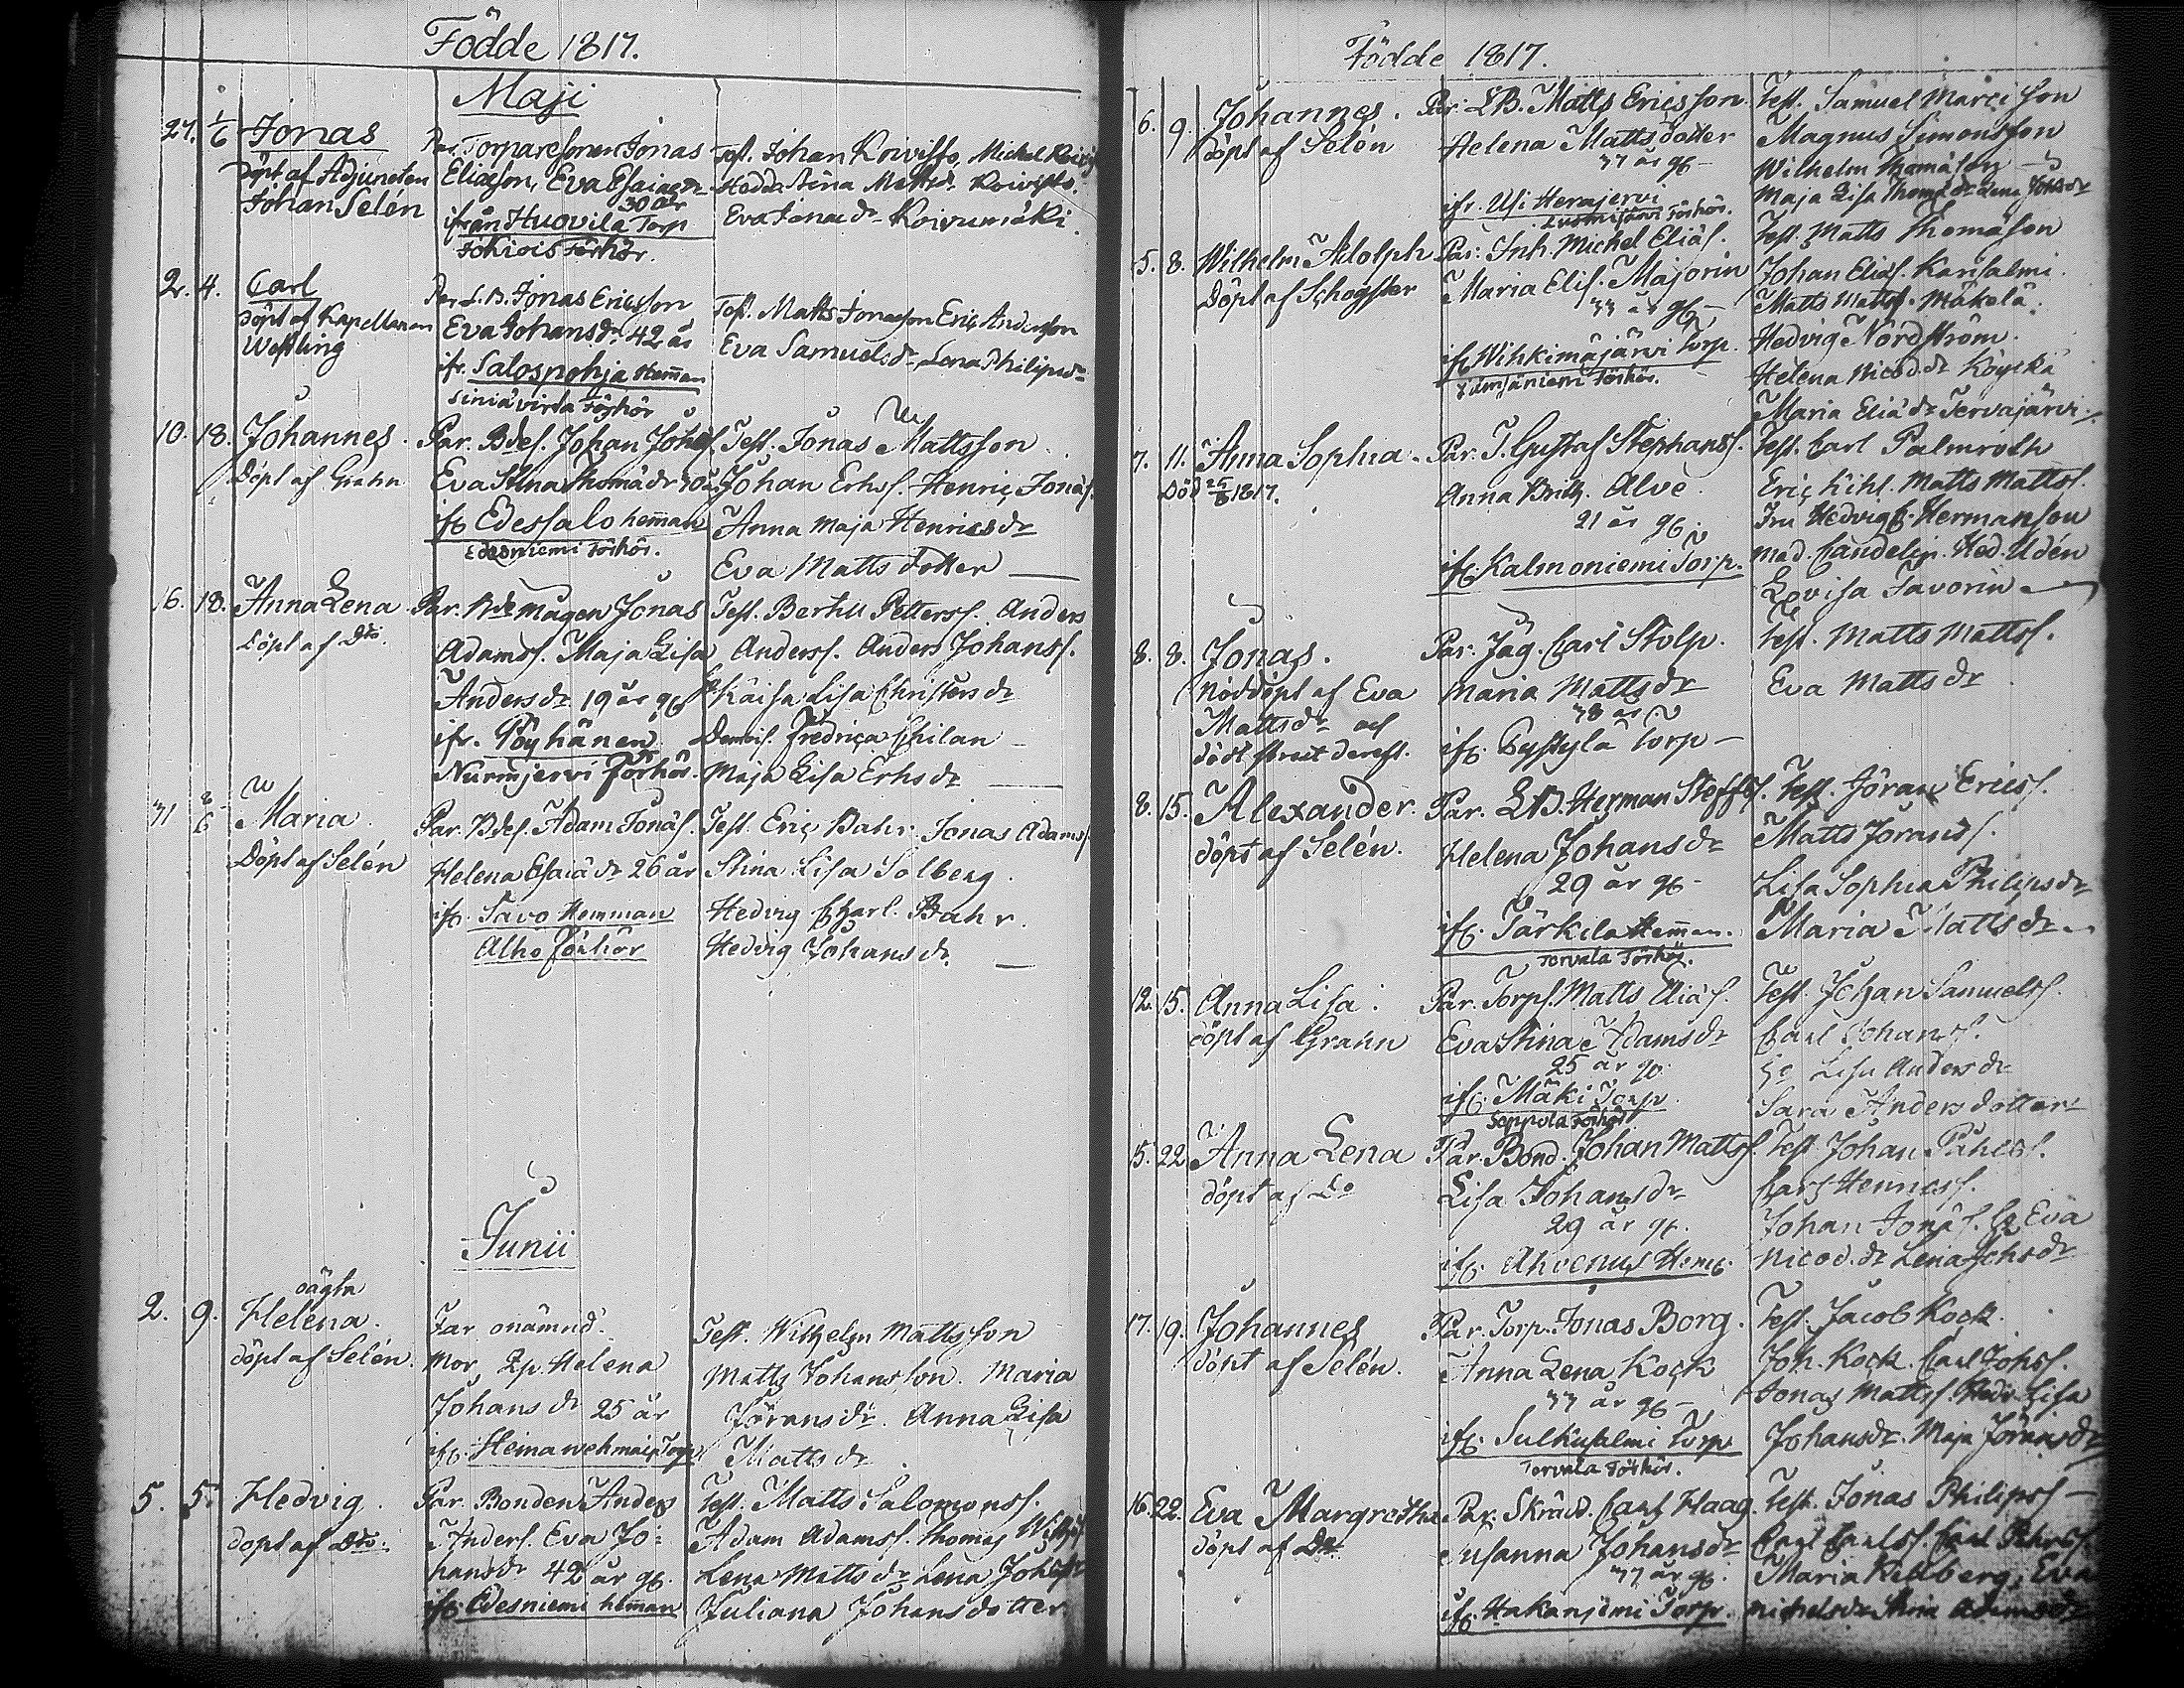 Födde 1817.
Maji
27. 1/6 Jonas
Döpt af Adjuncten
Johan Selén
Par. Torparesonen Jonas
Eliæson, Eva Esaiaedr
30 år
ifrån Huovila Torp
Jokiois Förhör.
Test. Johan Koivisto, Michel
Hedda Stina Mattsdr Koivisto,
Eva Jonaedr Koivumäki.
2. 4. Carl
Döpt af Kapellanen
Westling
Par L.B. Jonas Ericsson
Eva Johansdr 42 år
ifr. Salospohja Hemman
Siniävirta Förhör
Test. Matts Jonasson Eric Andersson
Eva Samuelsdr Lena Philipsdr
10. 18. Johannes.
Döpt af Grahn
Par. Bdes. Johan Johss.
Eva Stina Thomædr 30 år
ifr. Edessalo hemman
Edesniemi Förhör.
Test. Jonas Mattsson
Johan Erhs. Henric Jonæs.
Anna Maja Henricsdr
Eva Matts dotter
16. 18. Anna Lena
Döpt af Dto.
Par. Bdemågen Jonas
Adamss. Maja Lisa
Andersdr 19 år gf
ifr. Pöyhänen
Nurmjervi Förhör.
Test. Bertill Petterss. Anders
Anderss. Anders Johanss.
Kaisa Lisa Christersdr
Demois. Fredrica Chilan
Maja Lisa Erhsdr
31 2/6 Maria.
Döpt af Selén
Par. Bdes. Adam Jonæs.
Helena Esaiædr 26 år
ifr. Savo Hemman
Alho Förhör
Test. Eric Bahr. Jonas Adamss.
Stina Lisa Solberg.
Hedvig Charl. Bahr.
Hedvig Johansdr.
Junii
2. 9. oägta
Helena.
döpt af Selén.
Far onämnd.
Mor Zp. Helena
Johansdr 25 år
ifr. Heinawehmais Torp
Test. Wilhelm Mattsson
Matts Johansson. Maria
Göransdr. Anna Lisa
Mattsdr
5. 5. Hedvig.
döpt af Dto.
Par. Bonden Anders
Anders. Eva Jo-
hansdr 42 år gf.
ifr. Edesniemi hemman
Test. Matts Salomonss.
Adam Adamss. Thomas
Lena Mattsdr Lena
Juliana Johans dotter
Födde 1817.
6. 9. Johannes.
döpt af Selén
Par. L.B. Matts Ericsson
Helena Matts dotter
37 år gf
ifr. Usi Herajervi
Lusmijärvi Förhör.
Test. Samuel Marcisson
Magnus Simonsson
Wilhelm Thomæson
Maja Lisa Thomædr Lena Johsdr
5. 8. Wilhelm Adolph
Döpt af Schogster
Par. Inh. Michel Eliæs.
Maria Elis. Majorin
33 år gf
ifr. Wihkimäjärvi Torp.
Förhör.
Test. Matts Thomæson
Johan Eliæs. Karisalmi.
Matts Mattss. Mäkelä.
Hedvig Nordström.
Helena Nicod.dr Köyckä
Maria Eliædr Tervajärvi.
7. 11. Anna Sophia.
Död 25/8 1817.
Par. T. Gustaf Stephanss.
Anna Britt. Alvé.
21 år gf.
ifr. Kalmoniemi Torp.
Test. Carl Palmroth
Eric Kihl. Matts Mattss.
Fru Hedvig C. Hermanson
mad. Candelin. Hed. Udén
Lovisa Favorin
8. 8. Jonas.
Nöddöpt af Eva
Mattsdr och
död strax dereft.
Par. Jäg. Carl Stolp.
Maria Mattsdr
38 år
ifr. Pyssylä Torp
Test. Matts Mattss.
Eva Mattsdr
8. 15. Alexander.
döpt af Selén.
Par. L.B. Herman
Helena Johansdr
29 år gf
ifr. Särkilä Hemman.
Tervala Förhör.
Test. Jöran Ericss.
Matts Jöranss.
Lisa Sophia Philipsdr
Maria Mattsdr
12. 15. Anna Lisa.
döpt af Grahn
Par. Torps. Matts Eliæs.
Eva Stina Adamsdr
25 år gf.
ifr. Mäki Torp.
Seppola Förhör
Test. Johan Samuelss.
Carl Johanss.
Lisa Andersdr
Sara Anders dotter
15. 22. Anna Lena
döpt af Do
Par. Bond. Johan Mattss.
Lisa Johansdr
29 år gf.
ifr. Ahvenus Hem.
Test. Johan
Carl Henricss.
Johan Jonæs. Eva
Nicod.dr Lena Johsdr
17. 19. Johannes
döpt af Selén.
Par. Torp. Jonas Borg.
Anna Lena Kock
33 år gf
ifr. Sulkusalmi Torp
Tervala Förhör.
Test. Jacob Kock.
Joh. Kock. Carl Johss.
Jonas Mattss. Hedv. Lisa
Johansdr. Maja Göransdr
16. 22. Eva Margretha
döpt af Dto.
Par. Skrädd. Carl Haag.
Susanna Johansdr
37 år gf.
ifr. Hakanjemi Torp.
Test. Jonas Philipss
Carl Carlss. Carl
Maria Kellberg, Eva
Michelsdr Stina Adamsdr